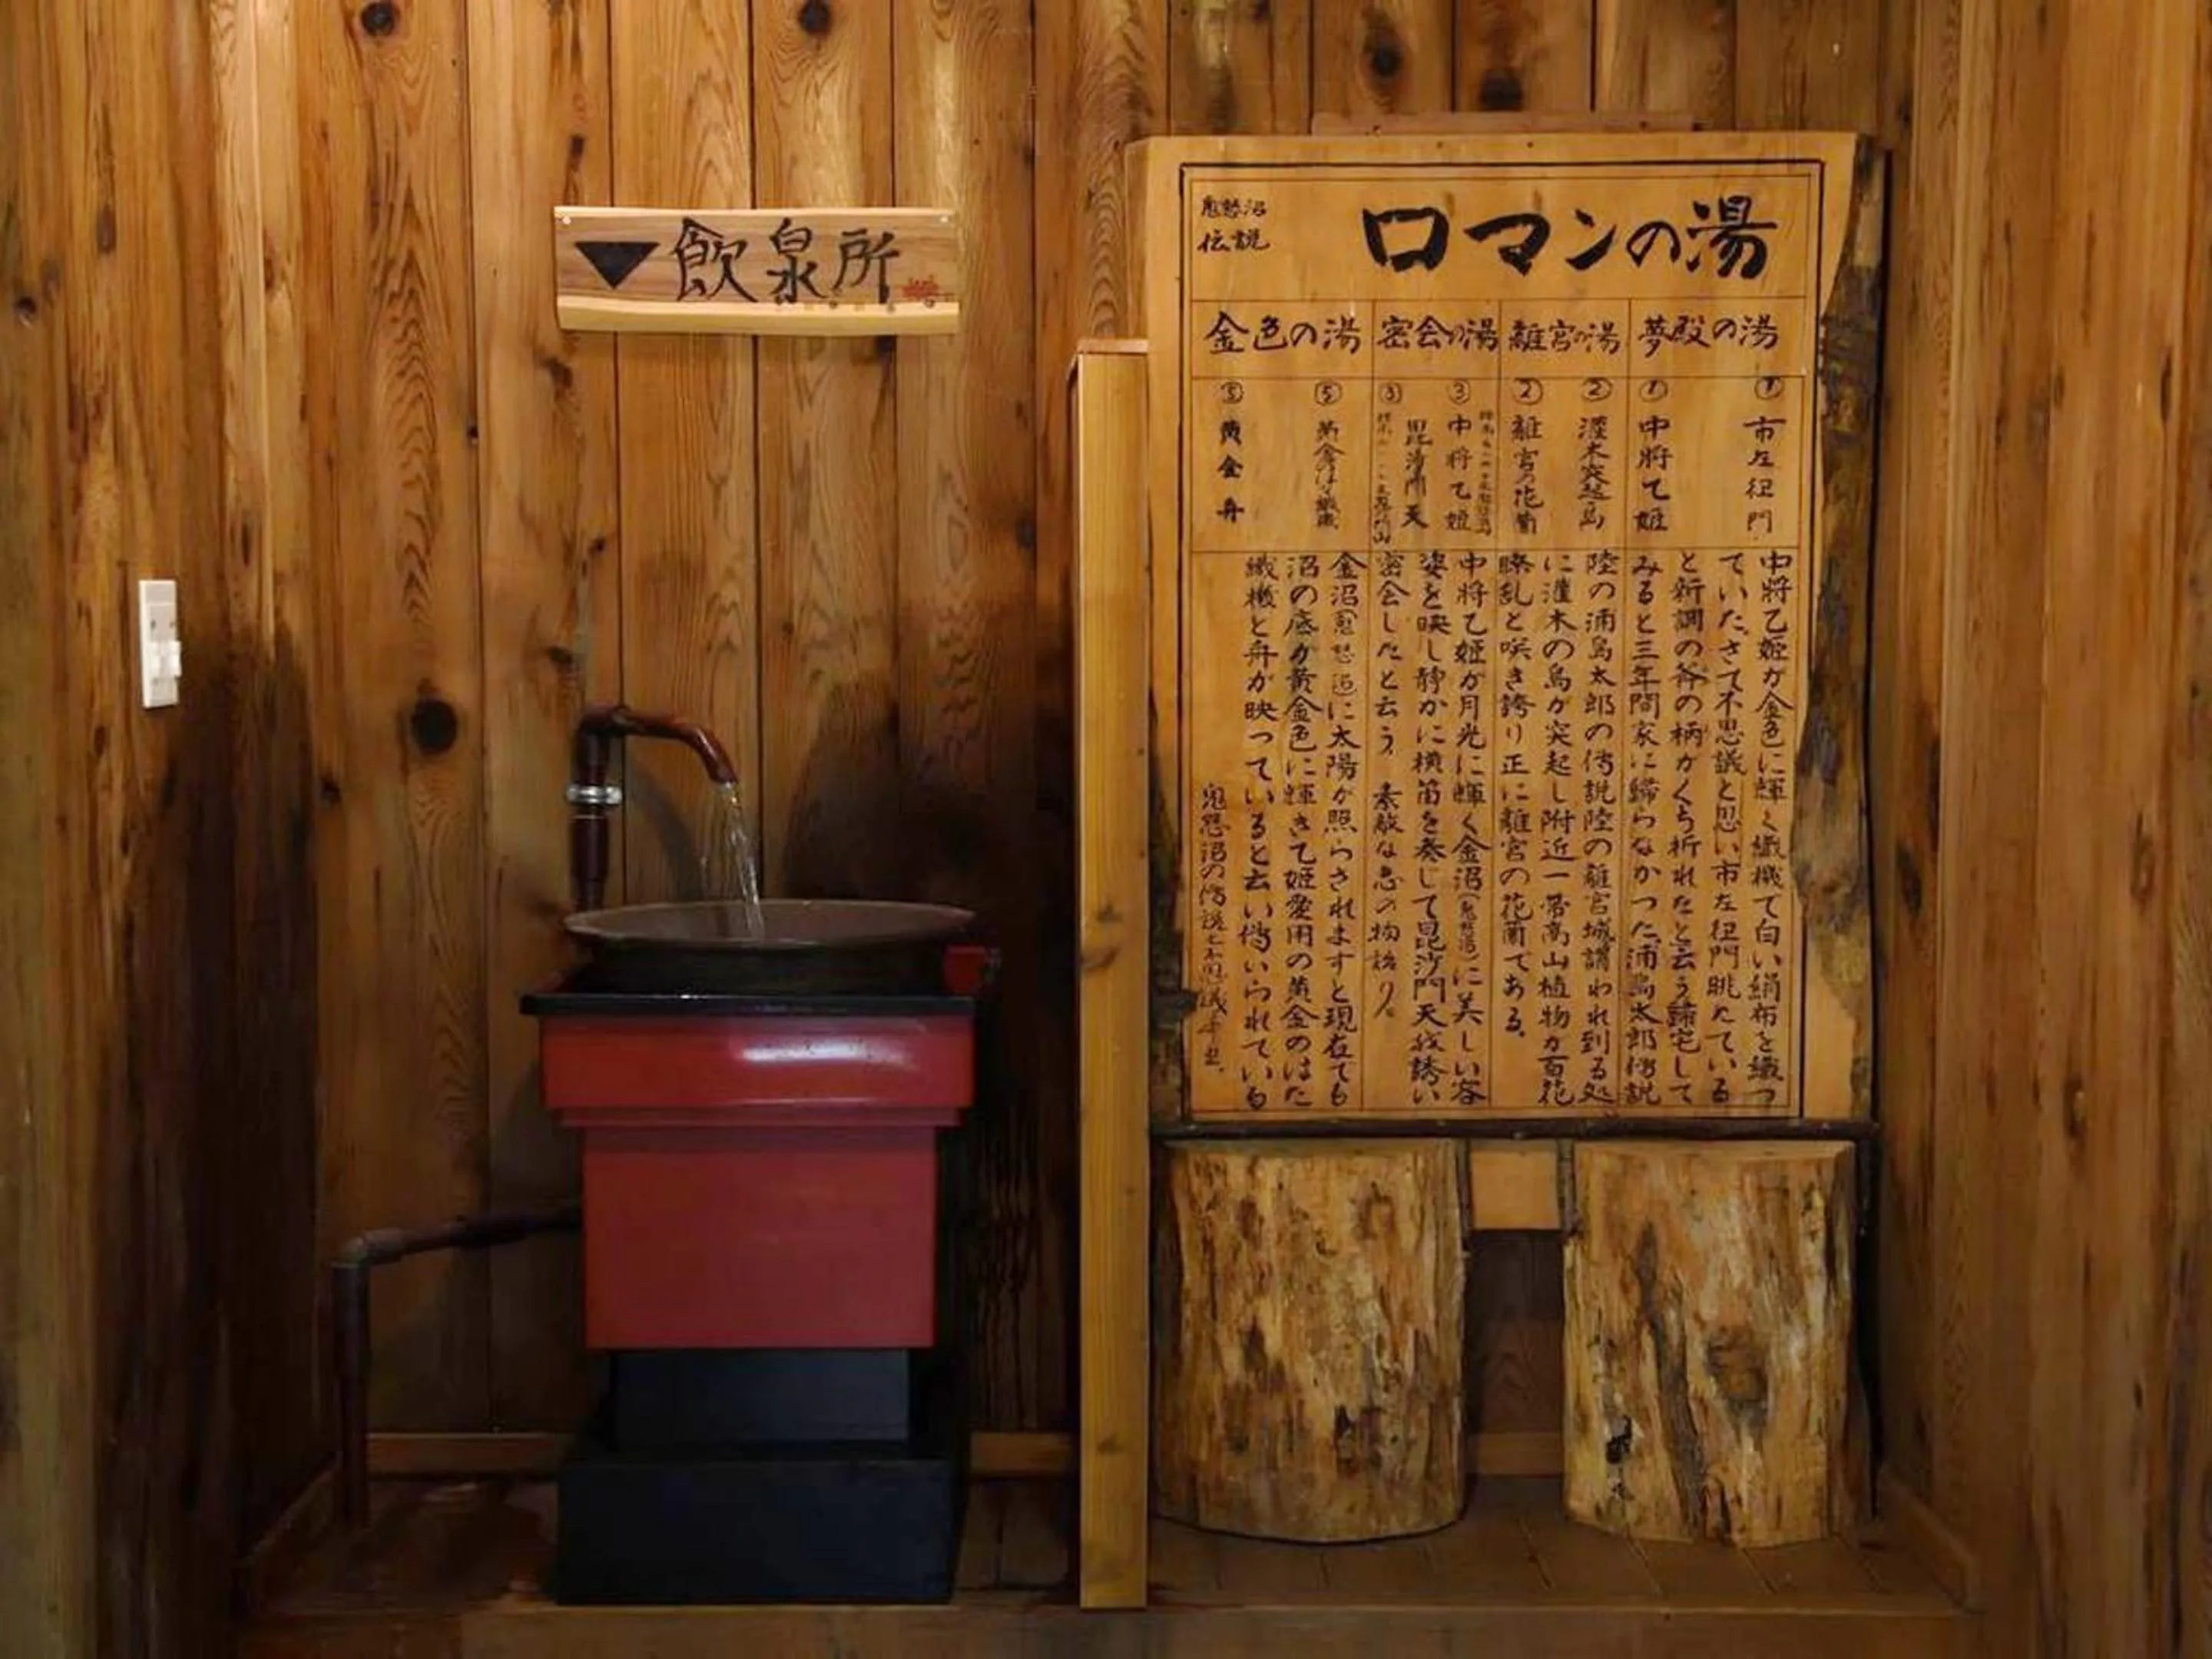 ▼飲泉所
鬼怒沼
伝説
ロマンの湯
夢殿の湯
離宮の湯
密会の湯
金色の湯
① 市左衛門
① 中将乙姫
② 灌木突起島
② 離宮の花園
③ 中将乙姫
③ 毘沙門天
⑤ 黄金のはた織機
⑤ 黄金舟
中將乙姫が金色に輝く織機て白い絹布を織つ
ていた。さて不思議と思い市左衛門眺たている
と新調の斧の柄がくち折れたと云う歸宅して
みると三年間家に歸らなかつた浦島太郎傳説
陸の浦島太郎の傳説陸の離宮城謂われ到る処
に灌木の島が突起し附近一帯高山植物が百花
瞭乱と咲き誇り正に離宮の花園である。
中將乙姫が月光に輝く金沼(鬼怒沼)に美しい容
姿を映し静かに横笛を奏じて毘沙門天を誘い
密会したと云う。素敵な恋の物語り。
金沼(鬼怒沼)に太陽が照らされますと現在ても
沼の底が黄金色に輝きて姫愛用の黄金のはた
織機と舟が映っていると云い傳いられている
鬼怒沼の傳説